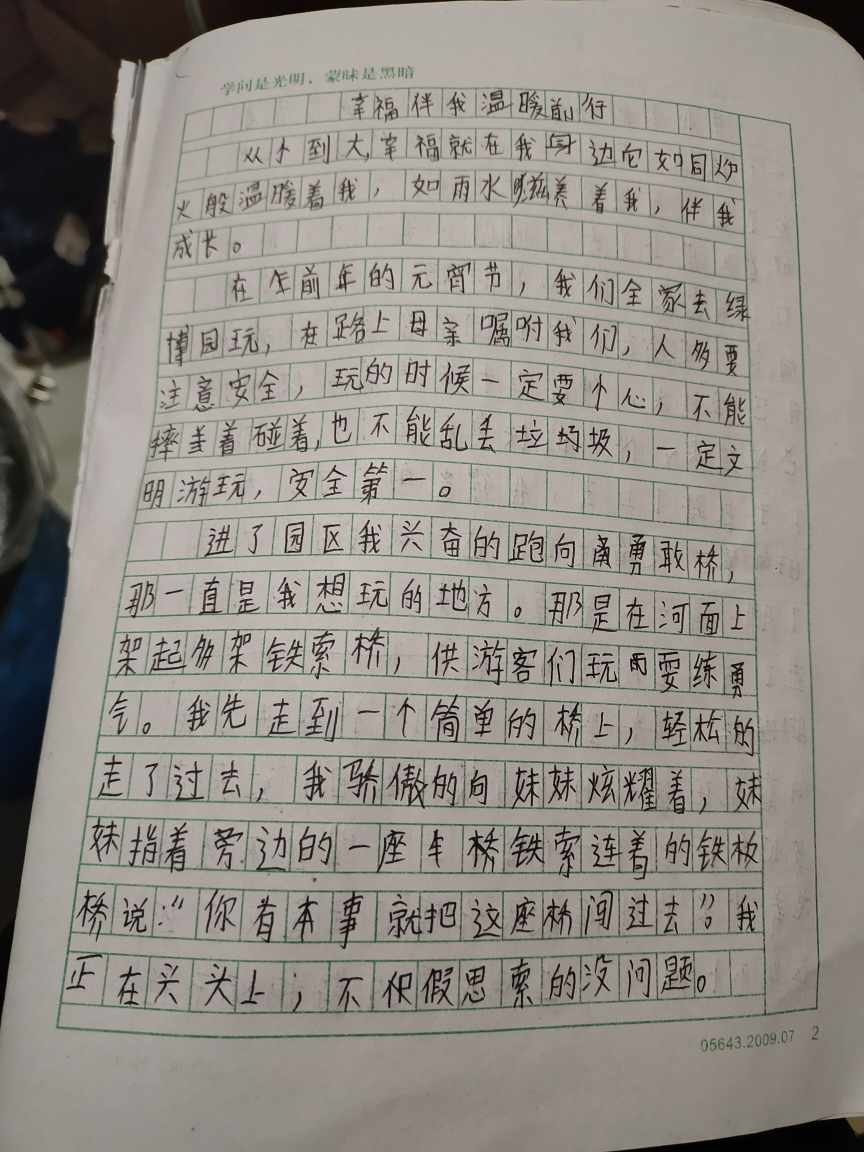 学问是光明，蒙昧是黑暗
幸福伴我温暖前行
从小到大，幸福就在我身边它如同炉
火般温暖着我，如雨水滋养着我，伴我
成长。
在年前年的元宵节，我们全家去绿
博园玩，在路上母亲嘱咐我们，人多要
注意安全，玩的时候一定要小心，不能
摔着碰着，也不能乱丢垃圾，一定文
明游玩，安全第一。
进了园区我兴奋的跑向勇敢桥，
那一直是我想玩的地方。那是在河面上
架起多架铁索桥，供游客们玩耍练勇
气。我先走到一个简单的桥上，轻松的
走了过去，我骄傲的向妹妹炫耀着，妹
妹指着旁边的一座桥铁索连着的铁板
桥说：“你有本事就把这座桥闯过去”。我
正在头头上，不假思索的没问题。
05643.2009.07 2